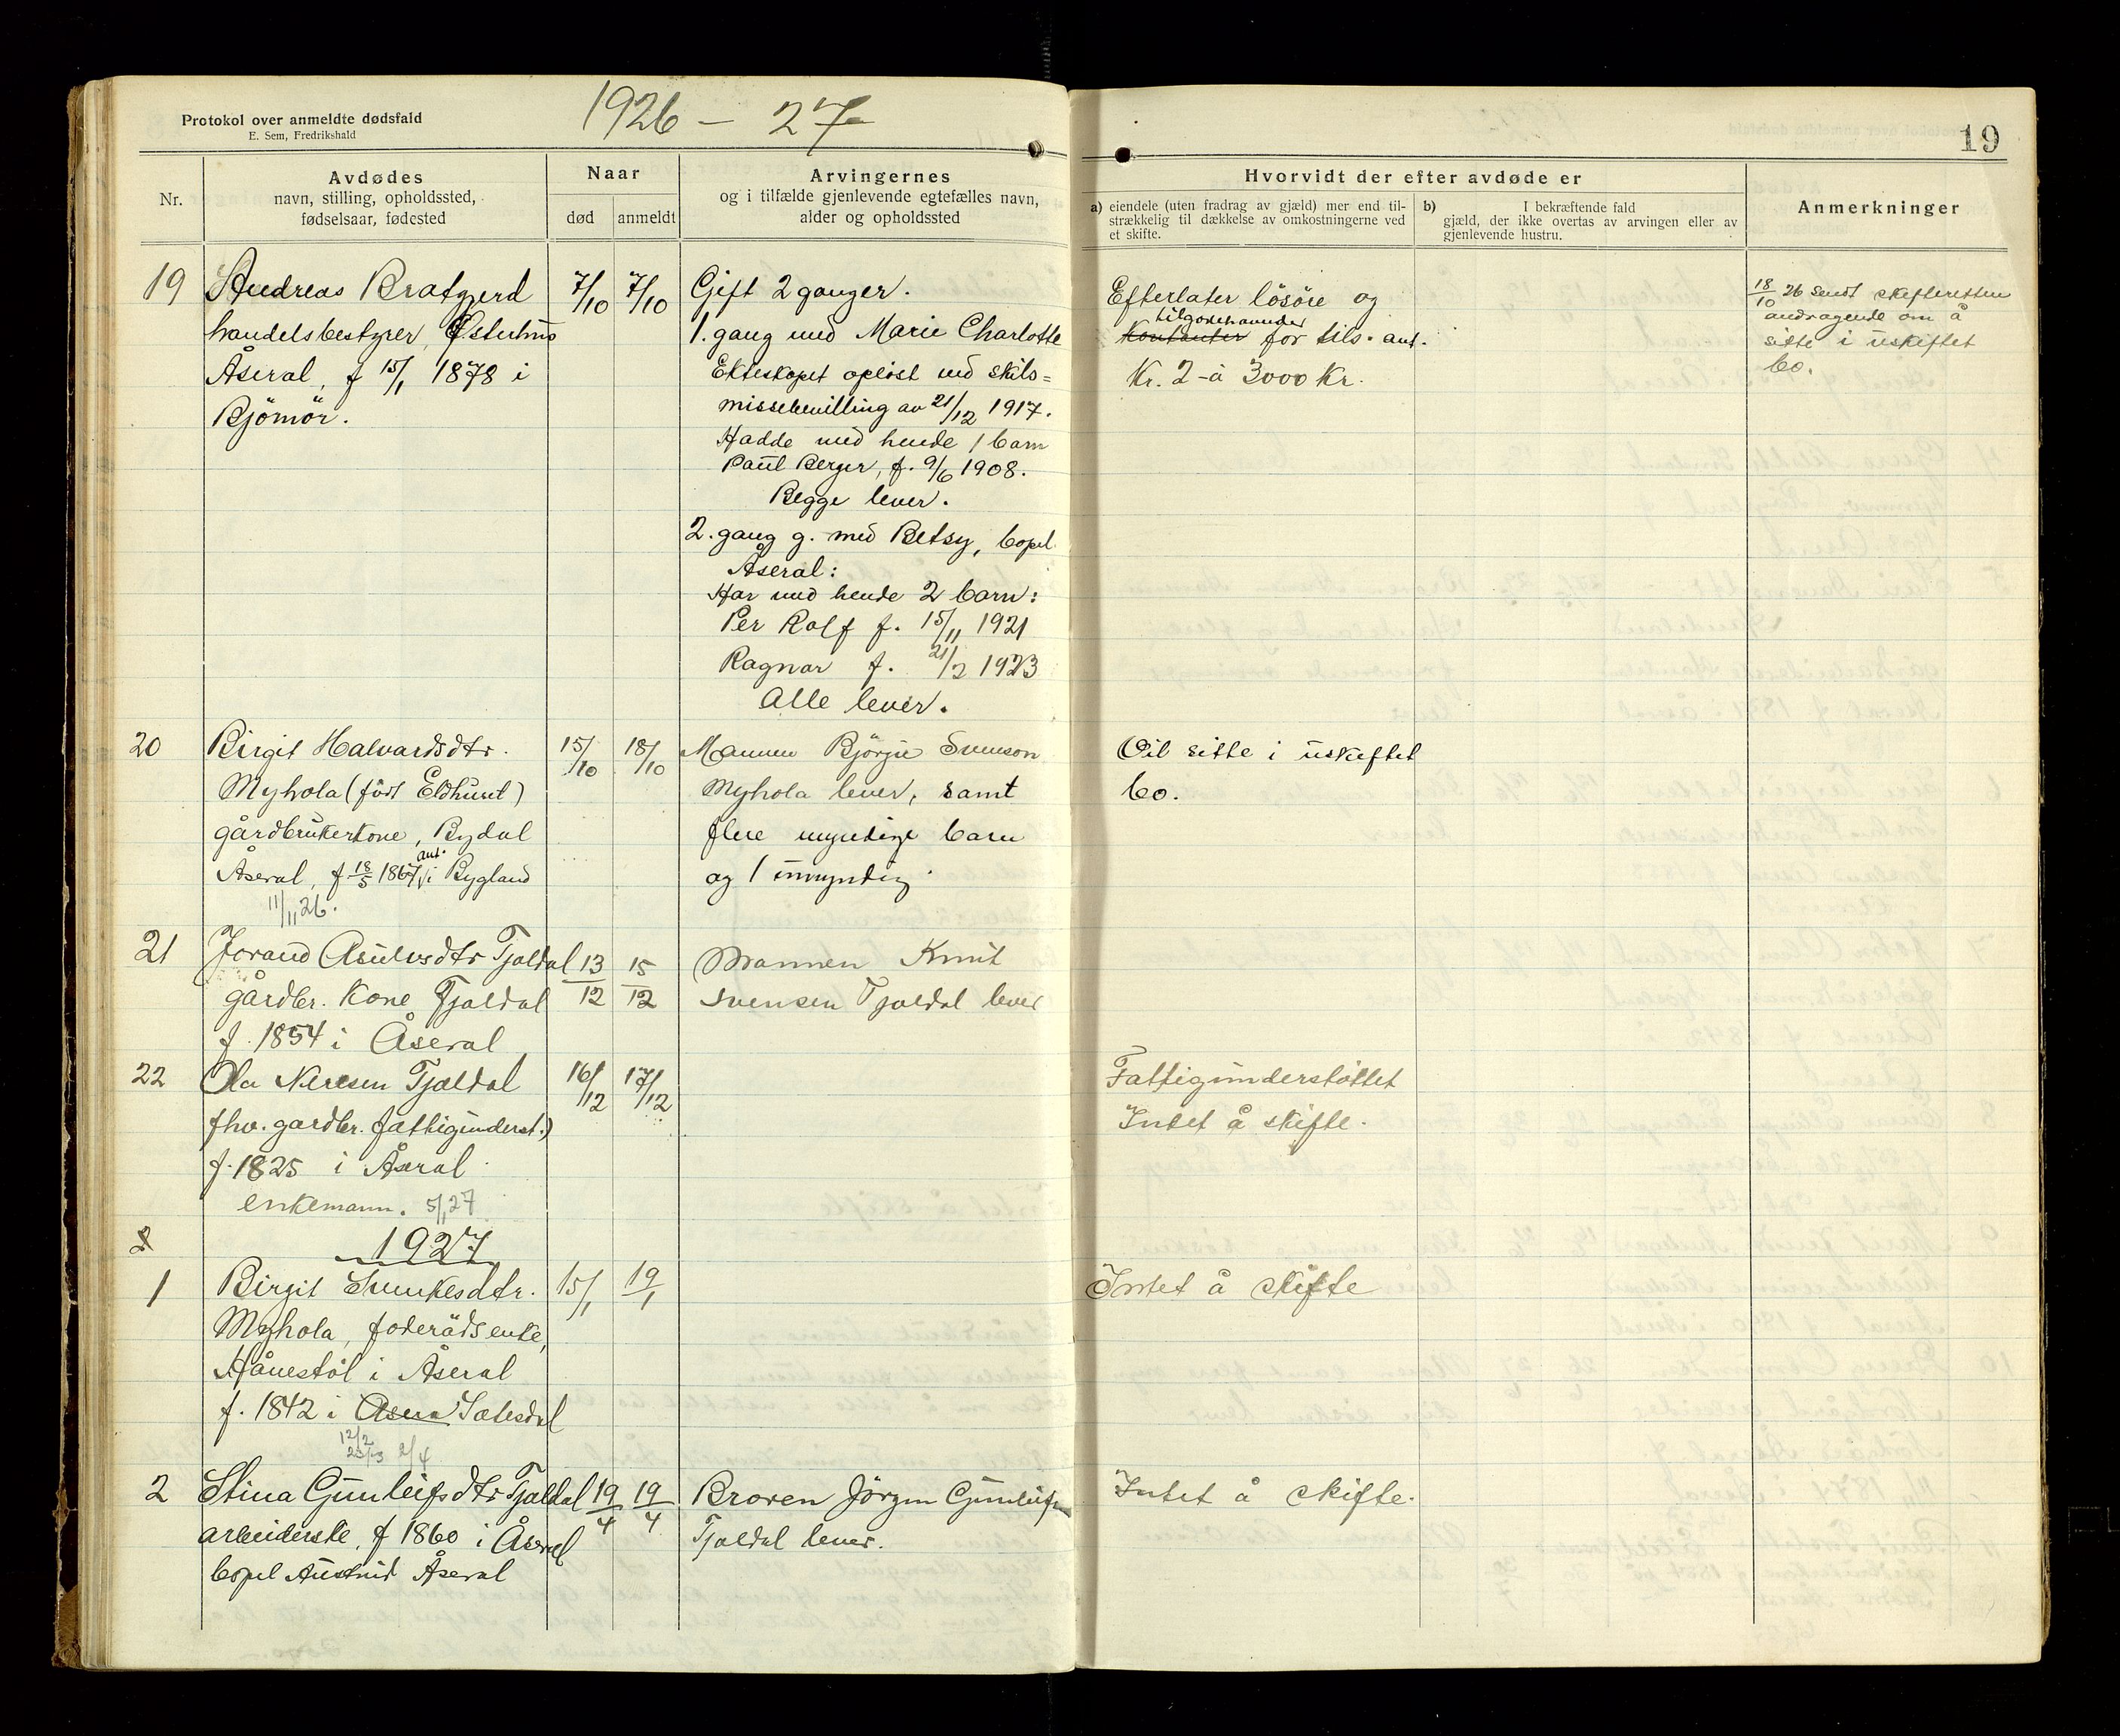 1926 – 27
Protokol over anmeldte dødsfald
E. Sem, Fredrikshald
19
Nr.
Avdødes
navn, stilling, opholdssted,
fødselsaar, fødested
Naar
død
anmeldt
Arvingernes
og i tilfælde gjenlevende egtefælles navn,
alder og opholdssted
Hvorvidt der efter avdøde er
a) eiendele (uten fradrag av gjæld) mer end til-
strækkelig til dækkelse av omkostningerne ved
et skifte.
b) I bekræftende fald
gjæld, der ikke overtas av arvingen eller av
gjenlevende hustru.
Anmerkninger
19
Andreas Bratgjerd
handelsbestyrer,
Åseral, f 15/1 1878 i
Bjömör.
7/10
7/10
Gift 2 ganger.
1. gang med Marie Charlotte
Ekteskapet oplöst ved skils=
missebevilling av 21/12 1917.
Hadde med hende 1 barn
Paul Berger, f. 9/6 1908.
Begge lever.
2. gang g. med Betsy, bopel
Åseral:
Har med hende 2 barn:
Per Rolf f. 15/11 1921
Ragnar f. 21/2 1923
Alle lever.
Efterlater lösöre og
tilgodehavender
kontanter for tils. ant.
Kr. 2 à 3000 Kr.
18/10 26 sendt skifteretten
andragende om å
sitte i uskiftet
bo.
20
Birgit Halvardsdtr.
Myhola (født Eldhunt)
gårdbrukerkone, Bydal
ant.
Åseral, f 18/5 1867 i Bygland
11/11 26.
15/10
18/10
Mannen Björgu Svenson
Myhola lever, samt
flere myndige barn
og 1 umyndig
Vil sitte i uskiftet
bo.
21
Jorand Asulvsdtr Tjaldal
gårdbr. kone Tjaldal
f. 1854 i Åseral
13/12
15/12
Mannen Knut
Svensen Tjaldal lever
22
Ola Nilsen Tjaldal
fhv. gardbr. fattigunderst.)
f. 1825 i Åseral
enkemann. 5/1 27
16/12
17/12
Fattigunderstöttet
Intet å skifte.
2
1927
1
Birgit Sveinkesdtr.
Myhola, foderådsenke,
Hånestöl i Åseral
f. 1842 i Asera Setesdal
12/2
23/3 2/4
15/1
19/1
Intet å skifte
2
Stina Gunleifsdtr Tjaldal
arbeiderske, f 1860 i Åseral
bopel Austrud Åseral
19/4
19/4
Broren Jörgen Gunleifs
Tjaldal lever.
Intet å skifte.